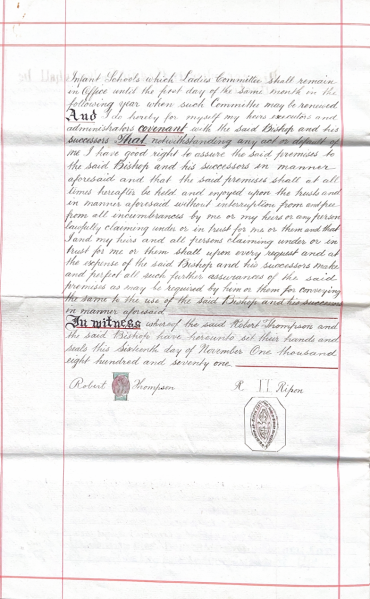 Infant Schools which Ladies Committee shall remain
in Office until the first day of the same month in the
following year when such Committee may be renewed
And I do hereby for myself my heirs executors and
administrators covenant with the said Bishop and his
successors That notwithstanding any act or default of
me I have good right to assure the said premises to
the said Bishop and his successors in manner
aforesaid and that the said premises shall at all
times hereafter be held and enjoyed upon the trusts and
in manner aforesaid without interruption from and free
from all incumbrances by me or my heirs or any person
lawfully claiming under or in trust for me or them and that
I and my heirs and all persons claiming under or in
trust for me or them shall upon every request and at
the expense of the said Bishop and his successors make
and perfect all such further assurances of the said
premises as may be required by him or them for conveying
the same to the use of the said Bishop and his successors
in manner aforesaid
In witness whereof the said Robert Thompson and
the said Bishop have hereunto set their hands and
seals this Sixteenth day of November One thousand
eight hundred and seventy one
Robert Thompson R Ripon